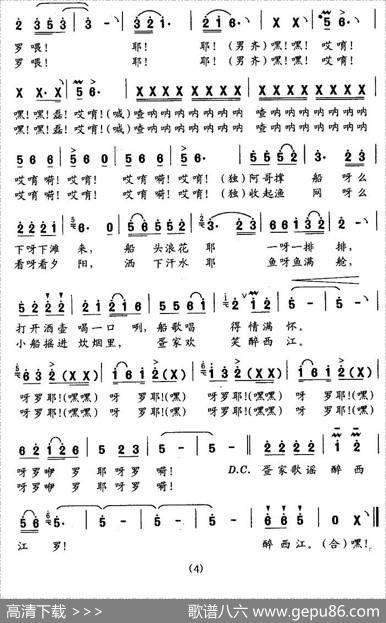 罗 喂! 耶! 耶!(男齐)嘿!嘿! 哎唷!
罗 喂! 耶! 耶!(男齐)嘿!嘿! 哎唷!
嘿!嘿! 嘿!哎唷!(喊)喳呐呐呐 呐呐呐呐 喳呐呐呐 呐呐呐呐
嘿!嘿! 嘿!哎唷!(喊)喳呐呐呐 呐呐呐呐 喳呐呐呐 呐呐呐呐
哎唷嗬! 哎唷! 哎唷嗬! 哎唷!(独)阿哥撑 船 呀么
哎唷嗬! 哎唷! 哎唷嗬! 哎唷!(独)收起渔 网 呀么
下呀下滩 来, 船 头浪花 耶 一呀一排 排,
看呀看夕 阳, 洒 下汗水 耶 鱼呀鱼满 舱,
打开酒壶 喝一口 咧, 船歌唱 得情满 怀。
小船摇进 炊烟里, 蛋家欢 笑醉西 江。
呀罗耶!(嘿嘿) 呀 罗耶!(嘿嘿) 呀罗耶!(嘿嘿) 呀 罗耶!(嘿嘿)
呀罗耶!(嘿嘿) 呀 罗耶!(嘿嘿) 呀罗耶!(嘿嘿) 呀 罗耶!(嘿嘿)
呀罗咿 罗 耶呀罗 嗬! D.C. 蛋家歌谣 醉 西
呀罗咿 罗 耶呀罗 嗬!
江 罗! 醉西江。(合)嘿!
(4)
高清下载 >>> 歌谱八六 www.gepu86.com